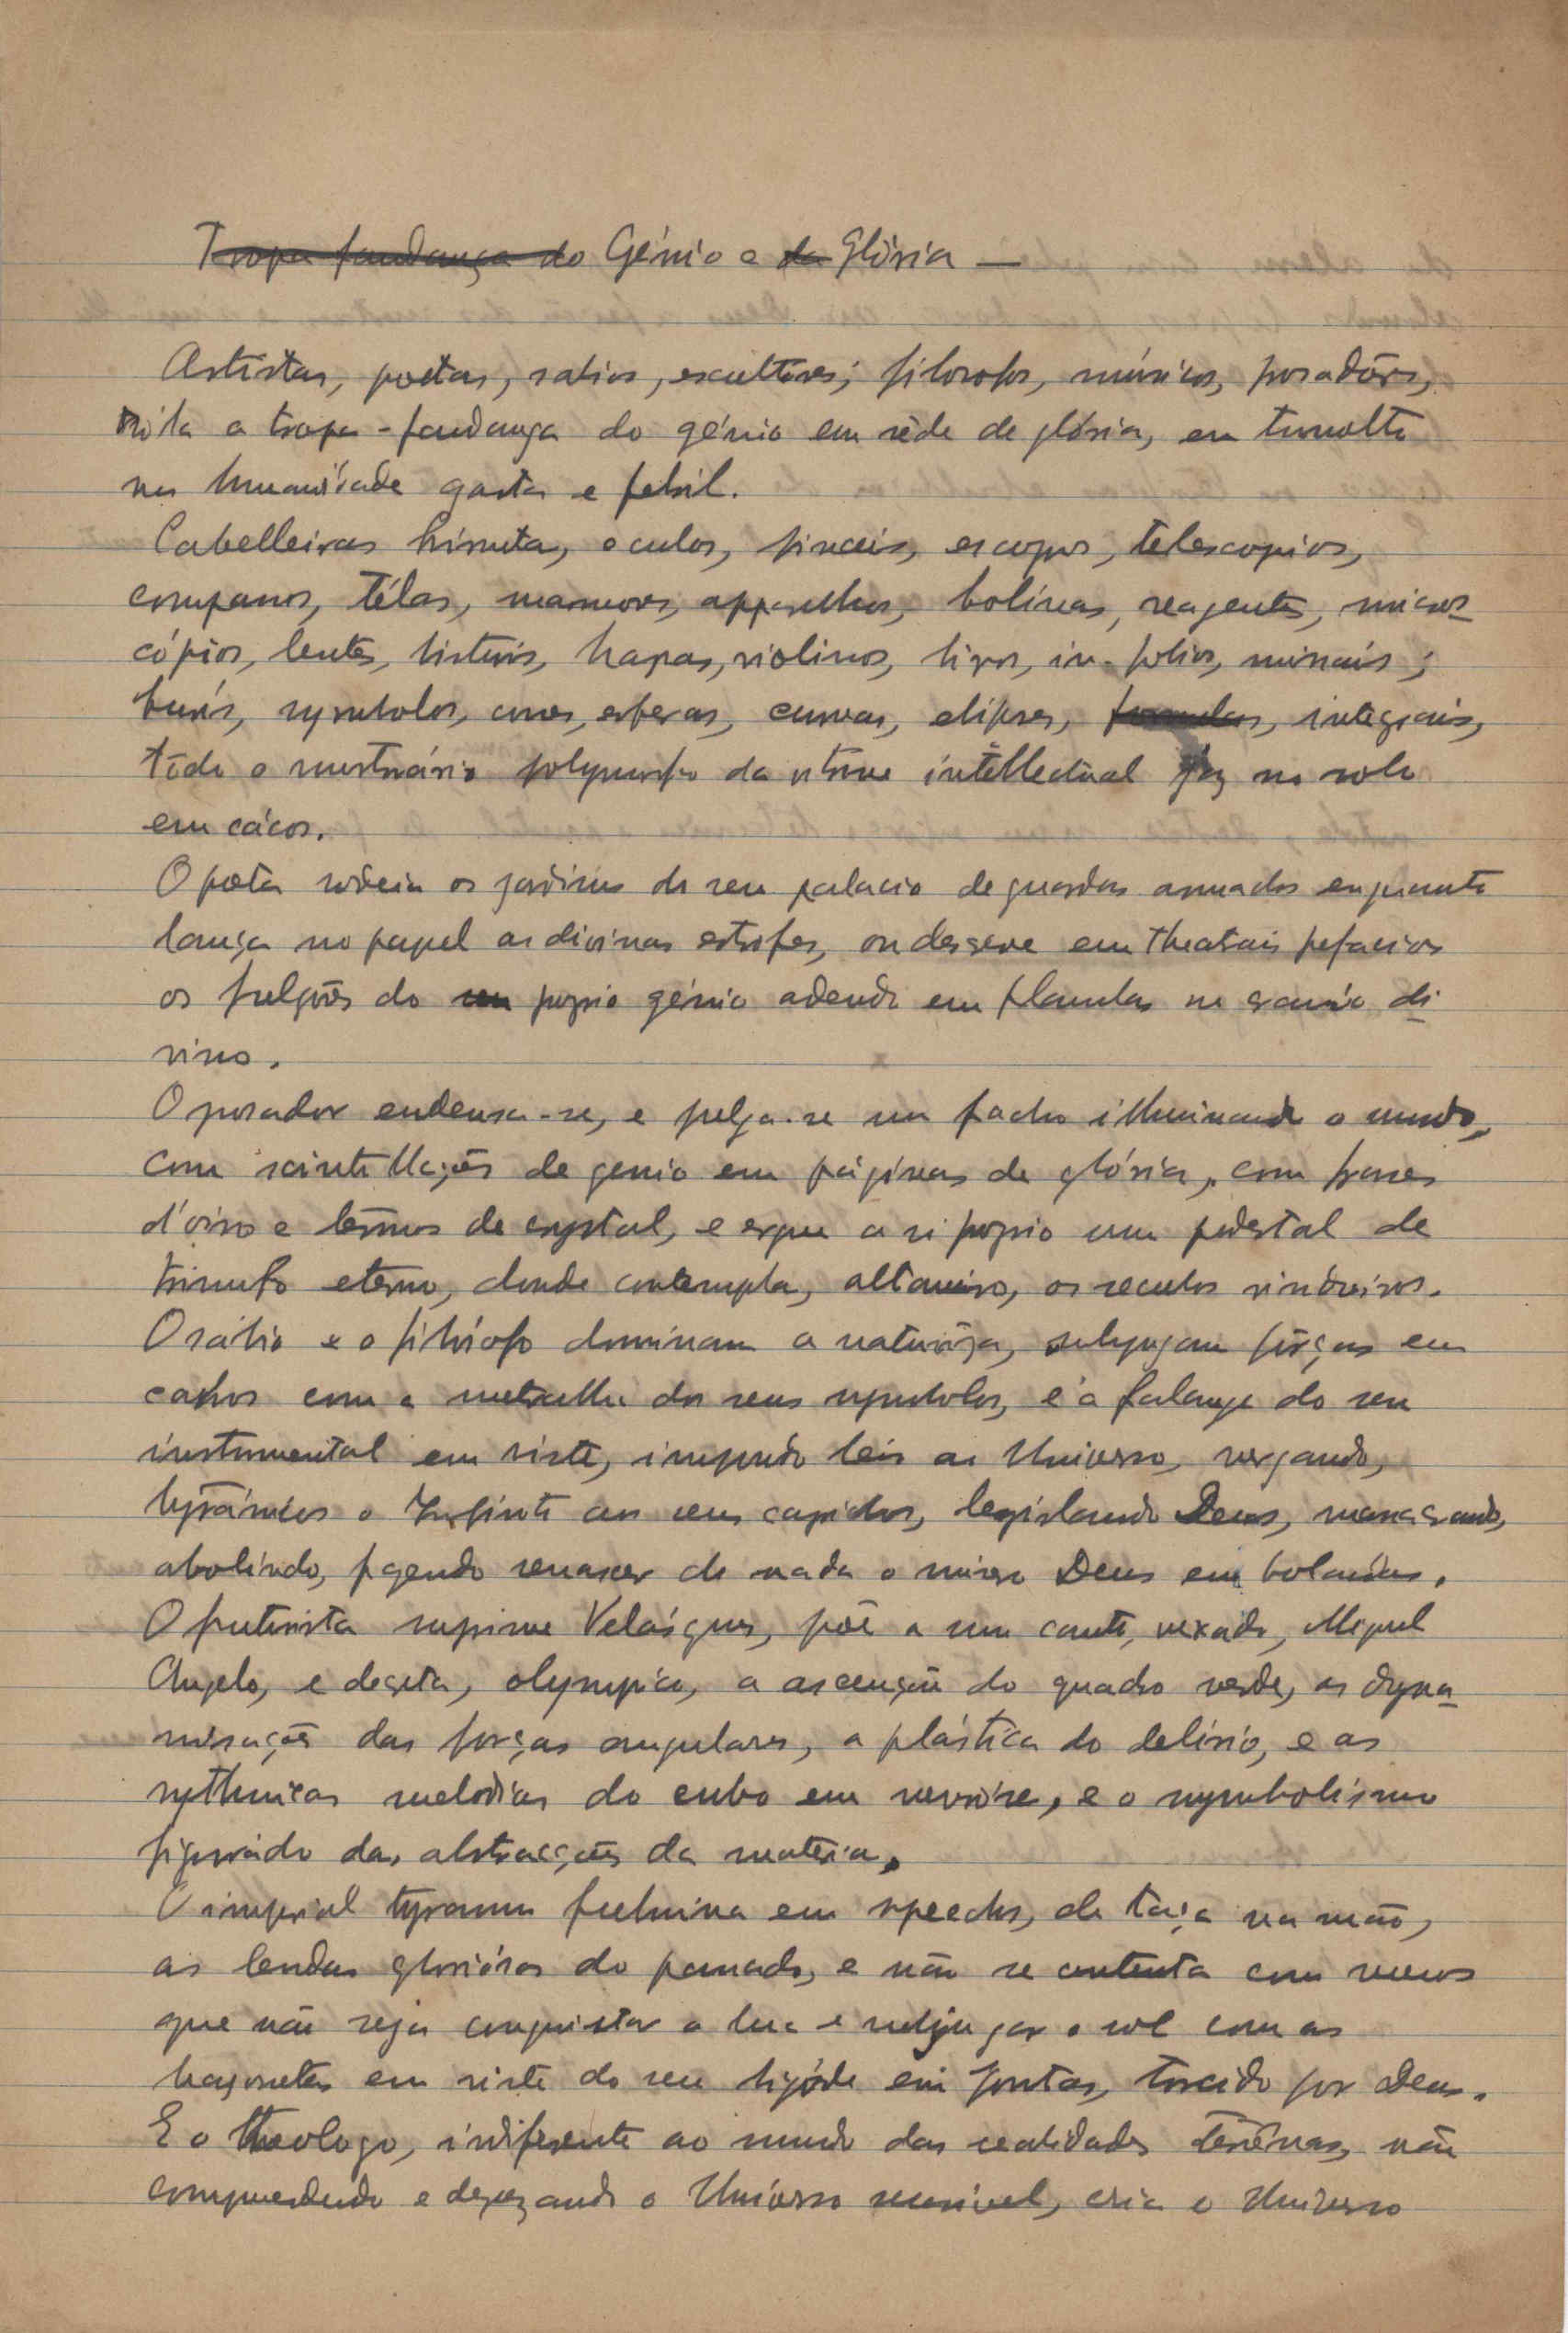 Tropa fandanga do Génio e da Glória —
Artistas, poetas, sabios, escultores; filosofos, músicos, prosadôres,
tôda a tropa-fandanga do génio em sêde de glória, em tumulto
na humanidade gasta e febril.
Cabelleiras hirsutas, oculos, pinceis, escopros, telescopios,
compassos, télas, marmores, apparelhos, bobinas, reagentes, micros-
cópios, lentes, bisturis, harpas, violinos, livros, in-folios, missais;
buris, symbolos, cones, esferas, curvas, elipses, formulas, integrais,
tôdo o mostruário polymorfo da vitrine intellectual jáz no solo
em cácos.
O poeta rodeia os jardins do seu palacio de guardas armados enquanto
lança no papel as divinas estrofes, ou descreve em theatrais prefacios
os fulgôres do seu proprio génio ardendo em flamulas no craneo di-
vino.
O prosador endeusa-se, e julga-se um facho illuminando o mundo,
com scintillações de genio em páginas de glória, com frases
d'oiro e termos de crystal, e ergue a si proprio um pedestal de
triunfo eterno, donde contempla, altaneiro, os seculos vindoiros.
O sábio e o filósofo dominam a naturêza, subjugam fôrças em
cachos com a metralha dos seus symbolos, e a falange do seu
instrumental em riste, impondo leis ao Universo, vergando,
tyrânicos o Infinito aos seus caprichos, legislando Deus, massacrando,
abolindo, fazendo renascer do nada o misero Deus em bolandas.
O futurista suprime Velásques, põe a um canto, vexado, Miguel
Angelo, e decreta, olympico, a ascenção do quadro verde, as dyna-
misações das forças angulares, a plástica do delirio, e as
rythmicas melodias do cubo em nevrose, e o symbolismo
figurado das abstracções da materia.
O imperial tyranno fulmina em speechs, de taça na mão,
as lendas gloriósas do passado, e não se contenta com menos
que não seja conquistar a lua e subjugar o sol com as
bayonetas em riste do seu bigóde em pontas, torcido por Deus.
E o theologo, indiferente ao mundo das realidades terrênas, não
comprendendo e desprezando o Universo sensivel, cria o Universo